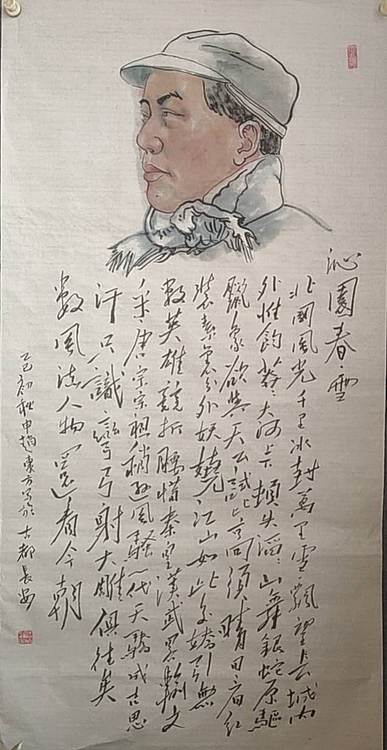 沁園春·雪
北國風光千里冰封萬里雪飄望長城内
外惟餘莽莽大河上下頓失滔滔山舞銀蛇原驅
臘象欲與天公試比高須晴日看紅
裝素裹分外妖嬈江山如此多嬌引無
數英雄競折腰惜秦皇漢武略輸文
采唐宗宋祖稍遜風騷一代天驕成吉思
汗只識彎弓射大雕俱往矣
數風流人物還看今朝
初秋東方寫於古都長安